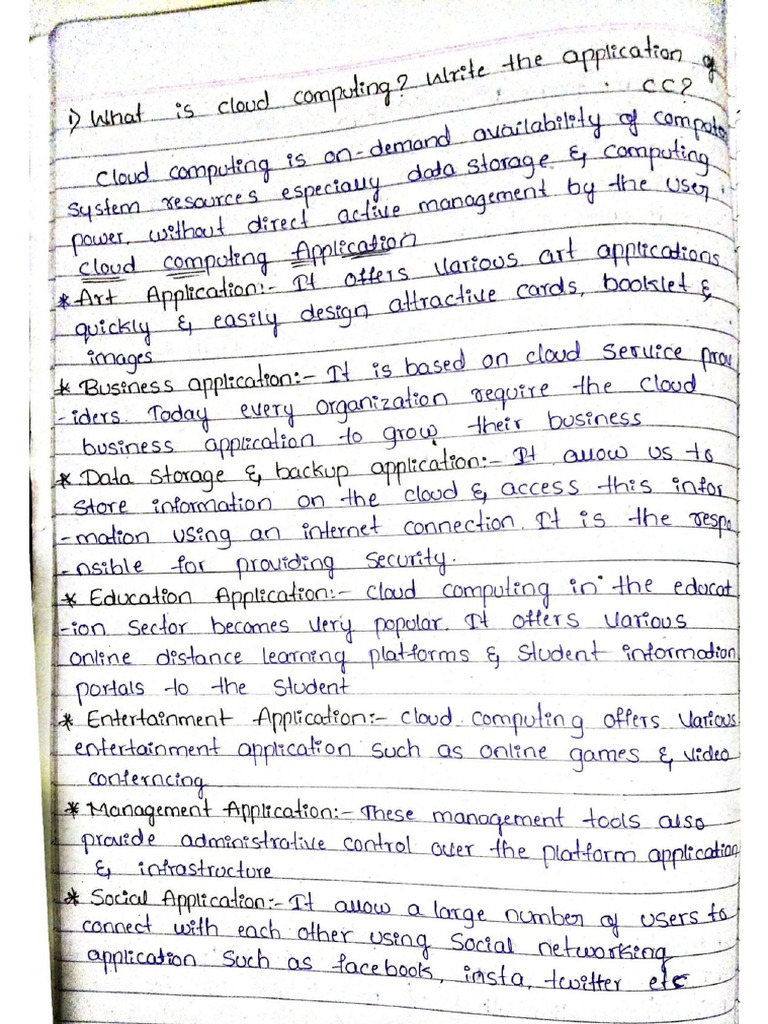 i) What is cloud computing? Write the application of
CC?
Cloud computing is on-demand availability of computer
system resources especially data storage & computing
power, without direct active management by the user.
Cloud computing Application
* Art Application:- It offers various art applications
quickly & easily design attractive cards, booklet &
images
* Business application:- It is based on cloud service prov
-iders. Today every organization require the cloud
business application to grow their business
* Data storage & backup application:- It allow us to
store information on the cloud & access this infor
-mation using an internet connection. It is the respo
-nsible for providing security.
* Education Application:- Cloud computing in the educat
-ion sector becomes very popular. It offers various
online distance learning platforms & student information
portals to the student
* Entertainment Application:- Cloud computing offers various
entertainment application such as online games & video
conferncing
* Management Application:- These management tools also
provide administrative control over the platform application
& infrastructure
* Social Application:- It allow a large number of users to
connect with each other using social networking
application such as facebook, insta, twitter etc